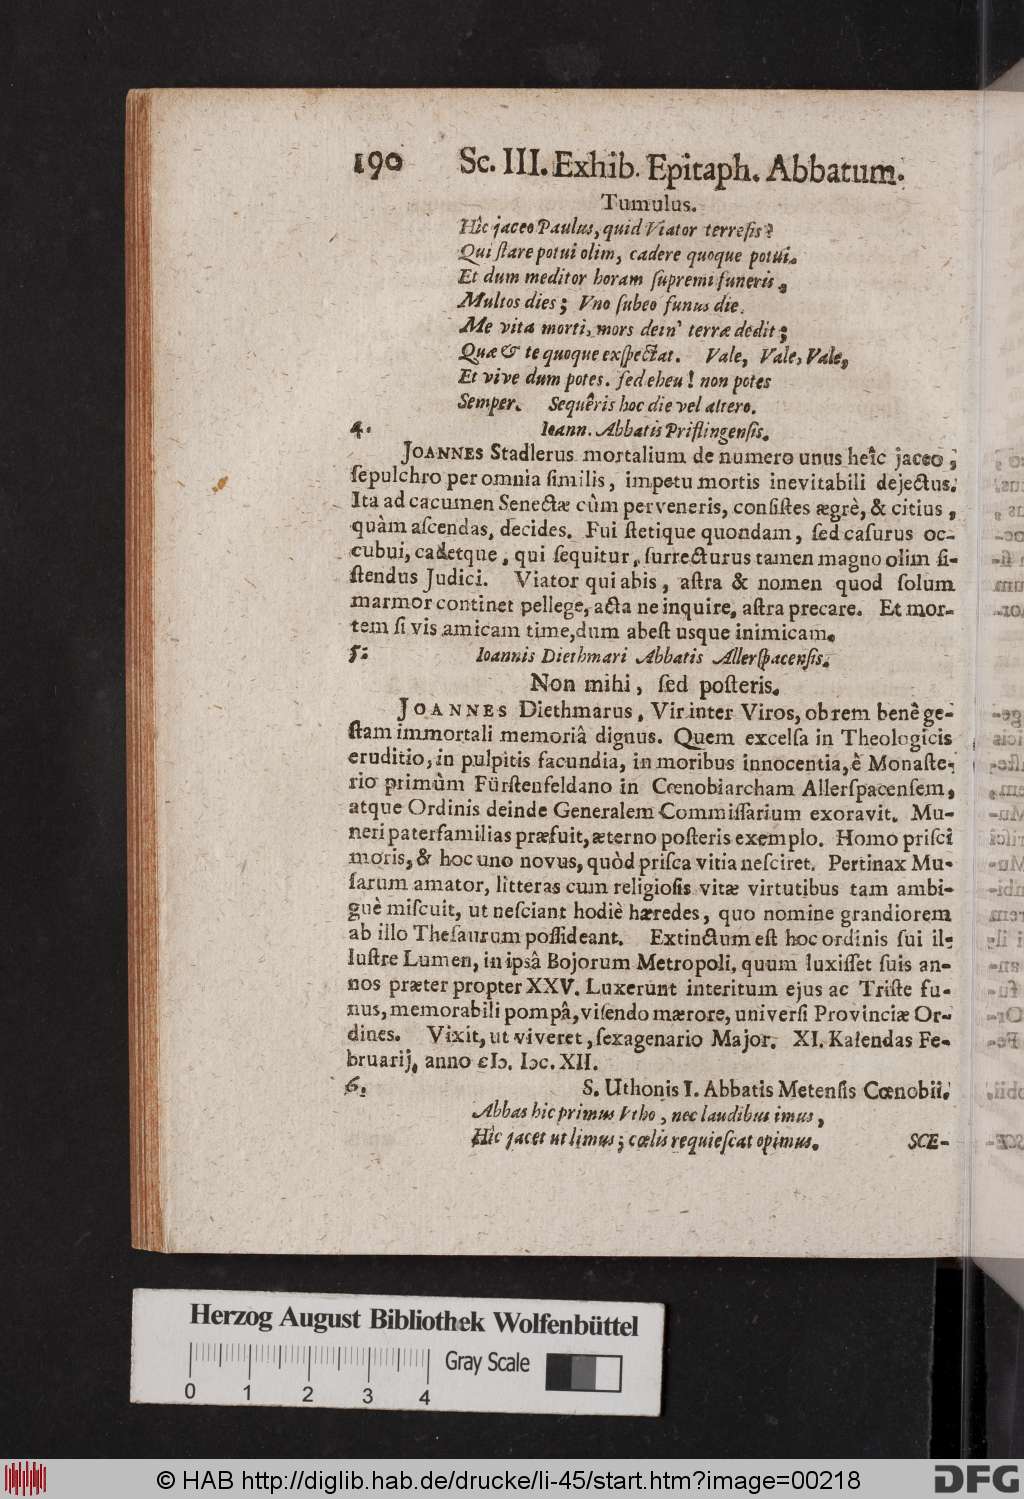 190 Sc. III. Exhib. Epitaph. Abbatum.
Tumulus.
Hîc jaceo Paulus, quid Viator terresis?
Qui ſtare potui olim, cadere quoque potui.
Et dum meditor horam ſupremi funeris,
Multos dies; Uno ſubeo funus die.
Me vita morti, mors dein' terræ dedit;
Quæ & te quoque exſpectat. Vale, Vale, Vale,
Et vive dum potes. ſed eheu! non potes
Semper. Sequêris hoc die vel altero.
4. Ioann. Abbatis Priflingenſis.
JOANNES Stadlerus mortalium de numero unus heîc jaceo,
ſepulchro per omnia ſimilis, impetu mortis inevitabili dejectus.
Ita ad cacumen Senectæ cùm perveneris, conſiſtes ægrè, & citius,
quàm aſcendas, decides. Fui ſtetique quondam, ſed caſurus oc-
cubui, cadetque, qui ſequitur, ſurrecturus tamen magno olim ſi-
ſtendus Judici. Viator qui abis, aſtra & nomen quod ſolum
marmor continet pellege, acta ne inquire, aſtra precare. Et mor-
tem ſi vis amicam time, dum abeſt usque inimicam.
5. Ioannis Diethmari Abbatis Allerſpacenſis.
Non mihi, ſed poſteris.
JOANNES Diethmarus, Vir inter Viros, ob rem benè ge-
ſtam immortali memoriâ dignus. Quem excelſa in Theologicis
eruditio, in pulpitis facundia, in moribus innocentia, è Monaſte-
rio primùm Fürſtenfeldano in Cœnobiarcham Allerſpacenſem,
atque Ordinis deinde Generalem Commiſſarium exoravit. Mu-
neri paterfamilias præfuit, æterno poſteris exemplo. Homo priſci
moris, & hoc uno novus, quòd priſca vitia neſciret. Pertinax Mu-
ſarum amator, litteras cum religioſis vitæ virtutibus tam ambi-
guè miſcuit, ut neſciant hodiè hæredes, quo nomine grandiorem
ab illo Theſaurum poſſideant. Extinctum eſt hoc ordinis ſui il-
luſtre Lumen, in ipsâ Bojorum Metropoli, quum luxiſſet ſuis an-
nos præter propter XXV. Luxerunt interitum ejus ac Triſte fu-
nus, memorabili pompâ, viſendo mærore, univerſi Provinciæ Or-
dines. Vixit, ut viveret, ſexagenario Major. XI. Kalendas Fe-
bruarij, anno cIↄ. Iↄc. XII.
6. S. Uthonis I. Abbatis Metenſis Cœnobii.
Abbas hic primus Utho, nec laudibus imus,
Hîc jacet ut limus; cœlis requieſcat opimus. SCE-
Herzog August Bibliothek Wolfenbüttel
0 1 2 3 4 Gray Scale
© HAB http://diglib.hab.de/drucke/li-45/start.htm?image=00218 DFG